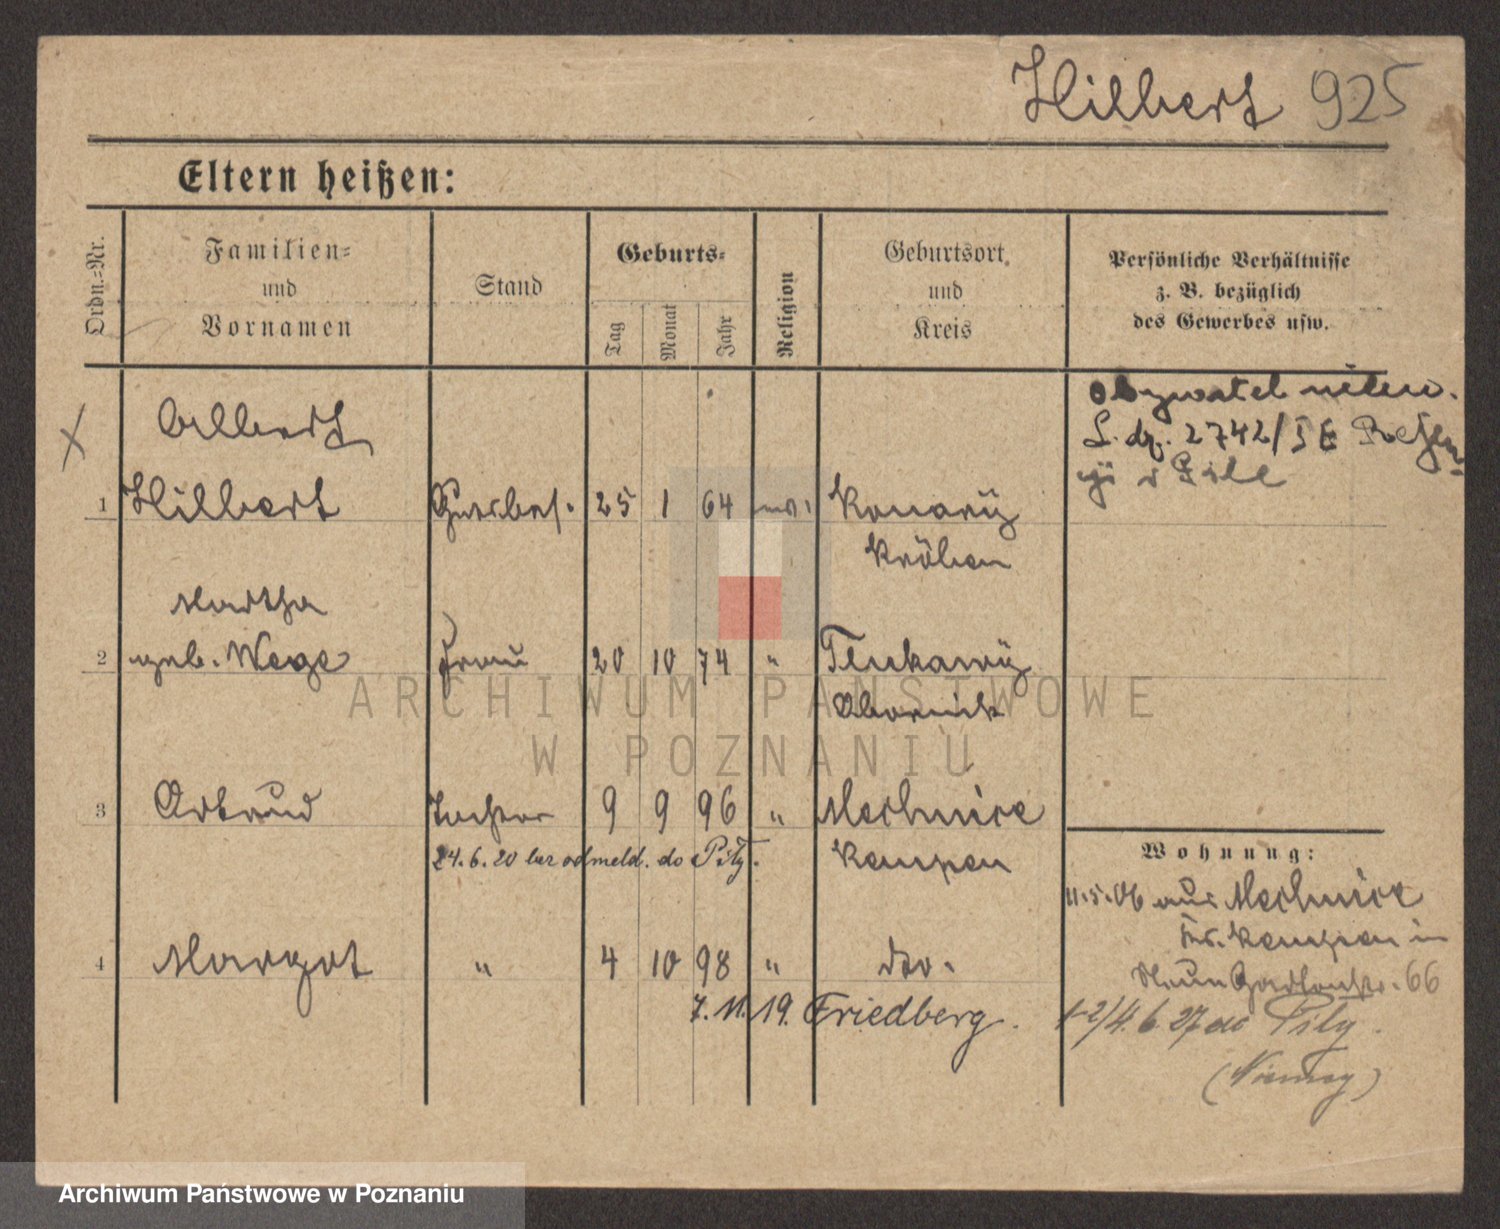 Hilbert 925
Eltern heißen:
Ordn.=Nr.
Familien=
und
Vornamen
Stand
Geburts=
Tag
Monat
Jahr
Religion
Geburtsort
und
Kreis
Persönliche Verhältnisse
z. B. bezüglich
des Gewerbes usw.
Albert
1 Hilbert Gutsbes. 25 1 64 Konary
Kröben
Martha
2 geb. Wege Frau 20 10 74 " Tlukawy
Obornick
3 Tochter 9 9 96 " Mechnice
Kempen
24.6.20 odmeld. do Piły.
4 Margot " 4 10 98 " dto.
7. 11. 19. Friedberg.
obywatel niem.
L. dz. 2742/
w Pile
Wohnung:
11.5.06 aus Mechnice
Kr. Kempen in
66
1-2/4. 6. 27 do Piły.
(Niemcy)
ARCHIWUM PAŃSTWOWE
W POZNANIU
Archiwum Państwowe w Poznaniu